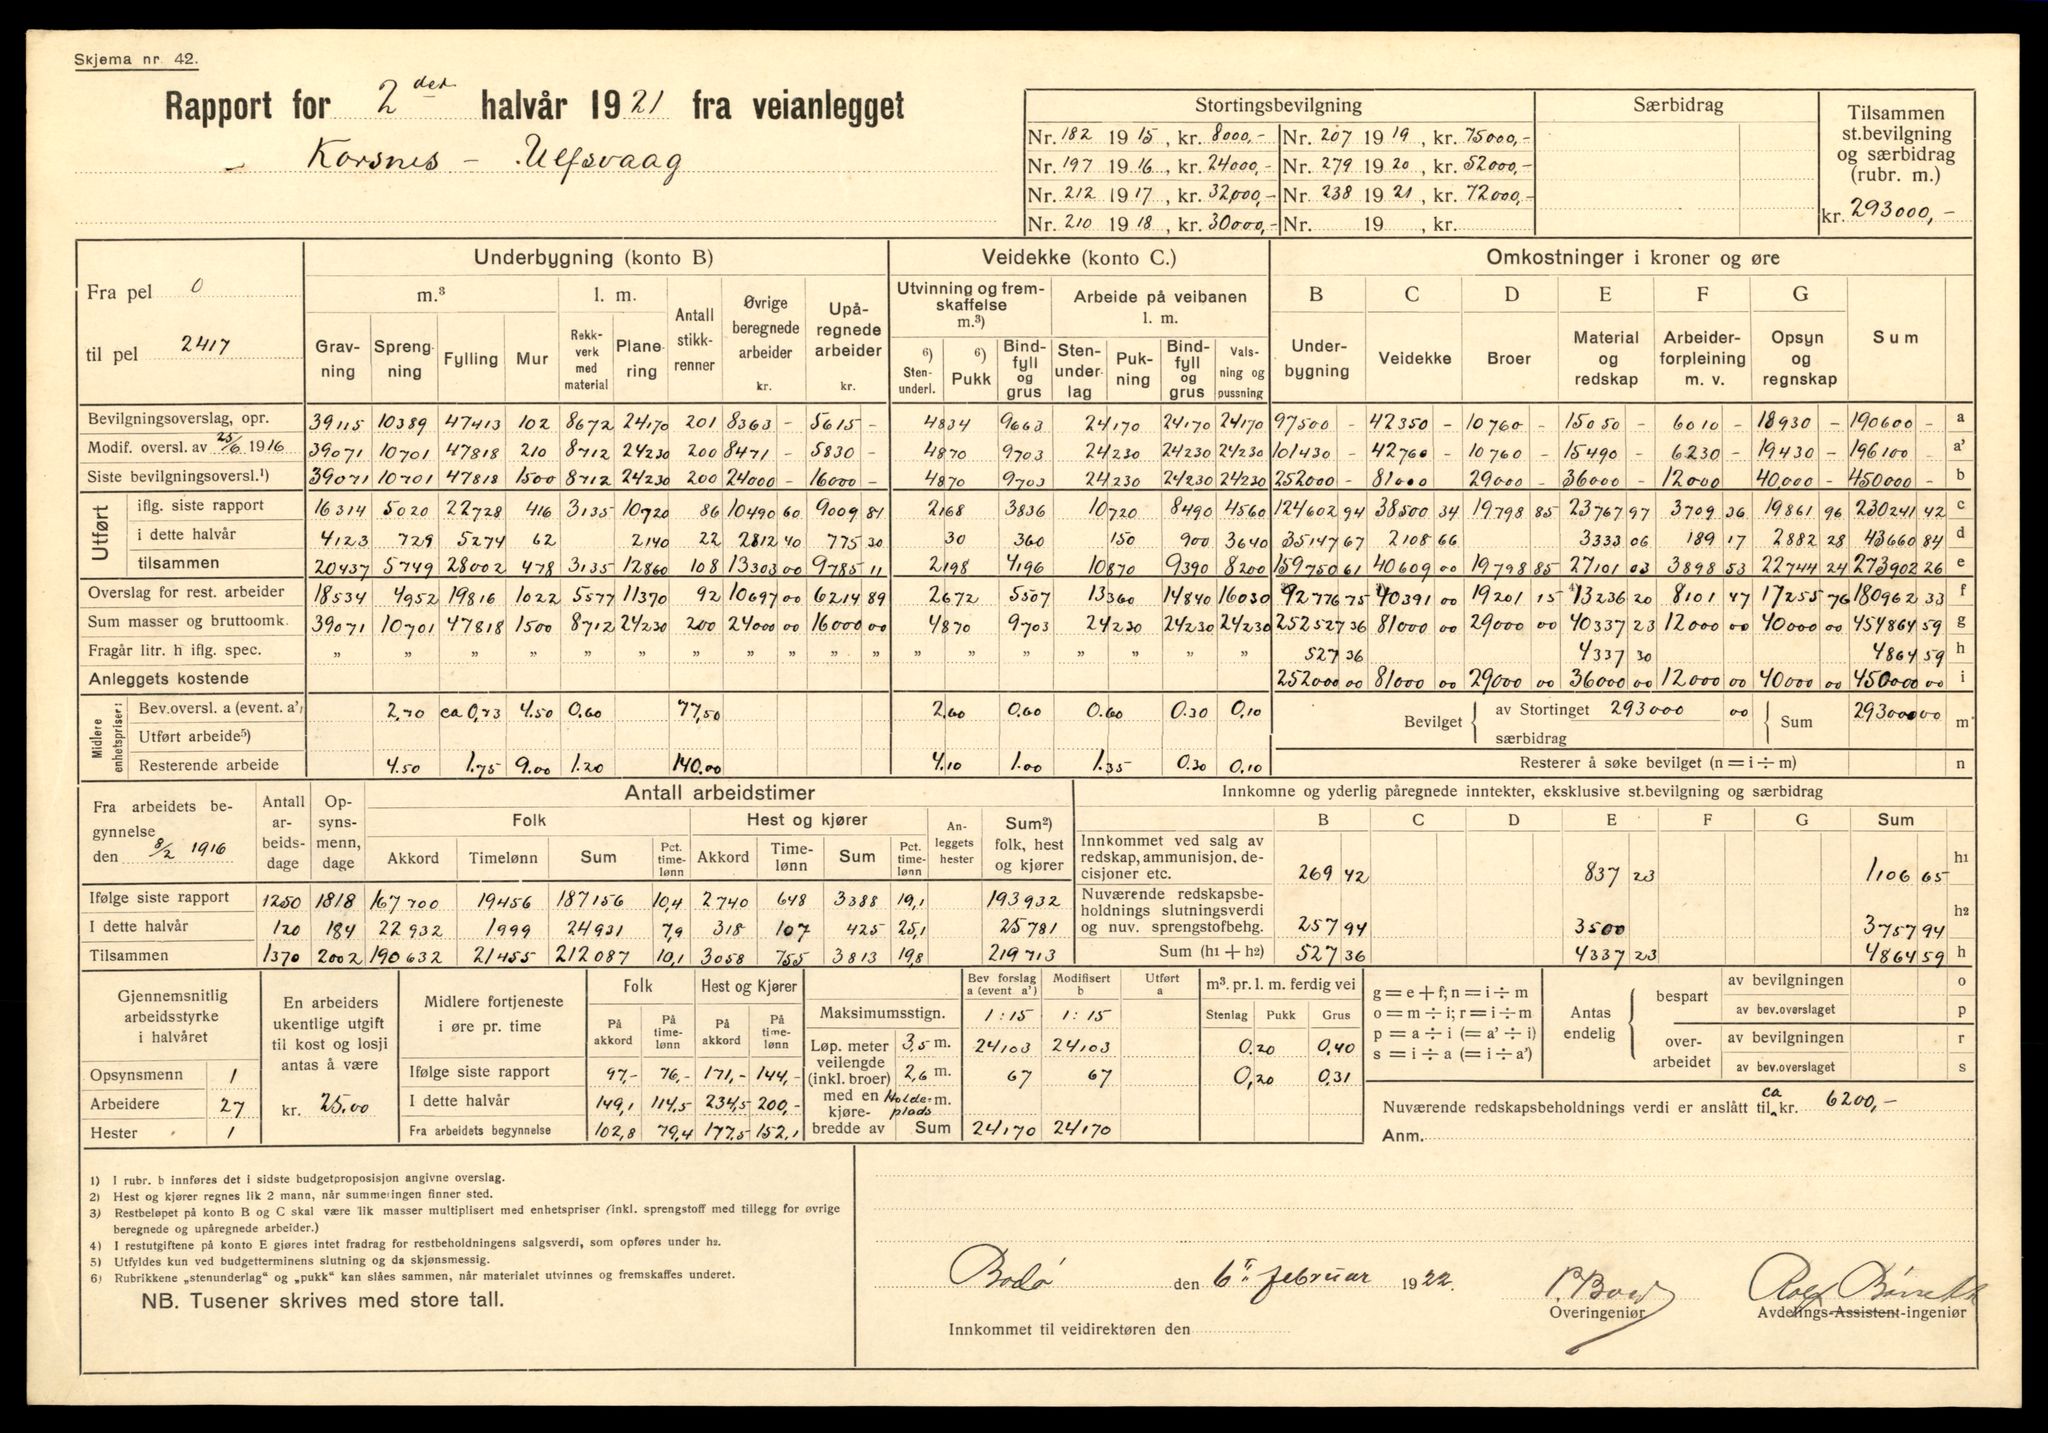 Skjema nr. 42.
Rapport for 2det halvår 1921 fra veianlegget
Korsnes - Ulfsvaag
Stortingsbevilgning | Særbidrag | Tilsammen st.bevilgning og særbidrag (rubr. m.)
Nr. 182 1915, kr. 8000,- Nr. 207 1919, kr. 75000,-
Nr. 197 1916, kr. 24000,- Nr. 279 1920, kr. 52000,-
Nr. 212 1917, kr. 32000,- Nr. 238 1921, kr. 72000,-
Nr. 210 1918, kr. 30000,- Nr. 19 , kr.
kr. 293000,-
Fra pel 0
til pel 2417
Underbygning (konto B) | Veidekke (konto C.) | Omkostninger i kroner og øre
m.³ | l. m. | Antall stikkrenner | Øvrige beregnede arbeider kr. | Upåregnede arbeider kr. | Utvinning og fremskaffelse m.³) | Arbeide på veibanen l. m. | B | C | D | E | F | G
Gravning | Sprengning | Fylling | Mur | Rekkverk med material | Planering | 6) Stenunderl. | 6) Pukk | Bindfyll og grus | Stenunderlag | Pukning | Bindfyll og grus | Valsning og pussning | Underbygning | Veidekke | Broer | Material og redskap | Arbeiderforpleining m. v. | Opsyn og regnskap | Sum
Bevilgningsoverslag, opr. 39115 10389 47413 102 8672 24170 201 8363 - 5615 - 4834 9663 24170 24170 24170 97500 - 42350 - 10760 - 15050 - 6010 - 18930 - 190600 - a
Modif. oversl. av 25/6 1916 39071 10701 47818 210 8712 24230 200 8471 - 5830 - 4870 9703 24230 24230 24230 101430 - 42760 - 10760 - 15490 - 6230 - 19430 - 196100 - a'
Siste bevilgningsoversl.¹) 39071 10701 47818 1500 8712 24230 200 24000 - 16000 - 4870 9703 24230 24230 24230 252000 - 81000 29000 - 36000 - 12000 40000 - 450000 - b
Utført
iflg. siste rapport 16314 5020 22728 416 3135 10720 86 10490 60 9009 81 2168 3836 10720 8490 4560 124602 94 38500 34 19798 85 23767 97 3709 36 19861 96 230241 42 c
i dette halvår 4123 729 5274 62 2140 22 2812 40 775 30 30 360 150 900 3640 35147 67 2108 66 3333 06 189 17 2882 28 43660 84 d
tilsammen 20437 5749 28002 478 3135 12860 108 13303 00 9785 11 2198 4196 10870 9390 8200 159750 61 40609 00 19798 85 27101 03 3898 53 22744 24 273902 26 e
Overslag for rest. arbeider 18534 4952 19816 1022 5577 11370 92 10697 00 6214 89 2672 5507 13360 14840 16030 92776 75 40391 00 19201 15 4) 13236 20 8101 47 17255 76 180962 33 f
Sum masser og bruttoomk. 39071 10701 47818 1500 8712 24230 200 24000 00 16000 00 4870 9703 24230 24230 24230 252527 36 81000 00 29000 00 40337 23 12000 00 40000 00 454864 59 g
Fragår litr. h iflg. spec. " " " " " " " " " " " " " " " " 527 36 4337 30 4864 59 h
Anleggets kostende 252000 00 81000 00 29000 00 36000 00 12000 00 40000 00 450000 00 i
Midlere enhetspriser:
Bev.oversl. a (event. a') 2,70 ca 0,73 4.50 0.60 77,50 2,60 0.60 0.60 0.30 0,10
Utført arbeide⁵)
Resterende arbeide 4.50 1.75 9.00 1.20 140.00 4.10 1.00 1.35 0.30 0,10
Bevilget av Stortinget 293000 00 særbidrag Sum 293000 00 m
Resterer å søke bevilget (n = i ÷ m) n
Fra arbeidets begynnelse den 8/2 1916
Antall arbeidsdage | Opsynsmenn, dage | Antall arbeidstimer
Folk | Hest og kjører | Anleggets hester | Sum²) folk, hest og kjører
Akkord | Timelønn | Sum | Pct. timelønn | Akkord | Timelønn | Sum | Pct. timelønn
Ifølge siste rapport 1250 1818 167700 19456 187156 10,4 2740 648 3388 19,1 193932
I dette halvår 120 184 22932 1999 24931 7,9 318 107 425 25,1 25781
Tilsammen 1370 2002 190632 21455 212087 10,1 3058 755 3813 19,8 219713
Innkomne og yderlig påregnede inntekter, eksklusive st.bevilgning og særbidrag
B C D E F G Sum
Innkommet ved salg av redskap, ammunisjon, decisjoner etc. 269 42 837 23 1106 65 h1
Nuværende redskapsbeholdnings slutningsverdi og nuv. sprengstofbehg. 257 94 3500 3757 94 h2
Sum (h1 + h2) 527 36 4337 23 4864 59 h
Gjennemsnitlig arbeidsstyrke i halvåret
Opsynsmenn 1
Arbeidere 27
Hester 1
En arbeiders ukentlige utgift til kost og losji antas å være
kr. 25.00
Midlere fortjeneste i øre pr. time | Folk | Hest og Kjører
På akkord | På timelønn | På akkord | På timelønn
Ifølge siste rapport 97,- 76,- 171,- 144,-
I dette halvår 149,1 114,5 234,5 200,-
Fra arbeidets begynnelse 102,8 79,4 177,5 152,1
Bev forslag a (event a') | Modifisert b | Utført a
Maksimumsstign. 1:15 1:15
Løp. meter veilengde (inkl. broer) med en kjørebredde av
3,5 m. 24103 24103
2,6 m. 67 67
Holdeplads m.
Sum 24170 24170
m³. pr. l. m. ferdig vei
Stenlag Pukk Grus
0,20 0,40
0,20 0,31
g = e + f; n = i ÷ m
o = m ÷ i; r = i ÷ m
p = a ÷ i (= a' ÷ i)
s = i ÷ a (= i ÷ a')
Antas endelig
bespart av bevilgningen o
av bev.overslaget p
overarbeidet av bevilgningen r
av bev.overslaget s
Nuværende redskapsbeholdnings verdi er anslått til ca kr. 6200,-
Anm.
1) I rubr. b innføres det i sidste budgetproposisjon angivne overslag.
2) Hest og kjører regnes lik 2 mann, når summeringen finner sted.
3) Restbeløpet på konto B og C skal være lik masser multiplisert med enhetspriser (inkl. sprengstoff med tillegg for øvrige
beregnede og upåregnede arbeider.)
4) I restutgiftene på konto E gjøres intet fradrag for restbeholdningens salgsverdi, som opføres under h2.
5) Utfyldes kun ved budgetterminens slutning og da skjønsmessig.
6) Rubrikkene „stenunderlag“ og „pukk“ kan slåes sammen, når materialet utvinnes og fremskaffes underet.
NB. Tusener skrives med store tall.
Bodø den 6 februar 1922.
Overingeniør
Rolf
Avdelings-Assistent-ingeniør
Innkommet til veidirektøren den